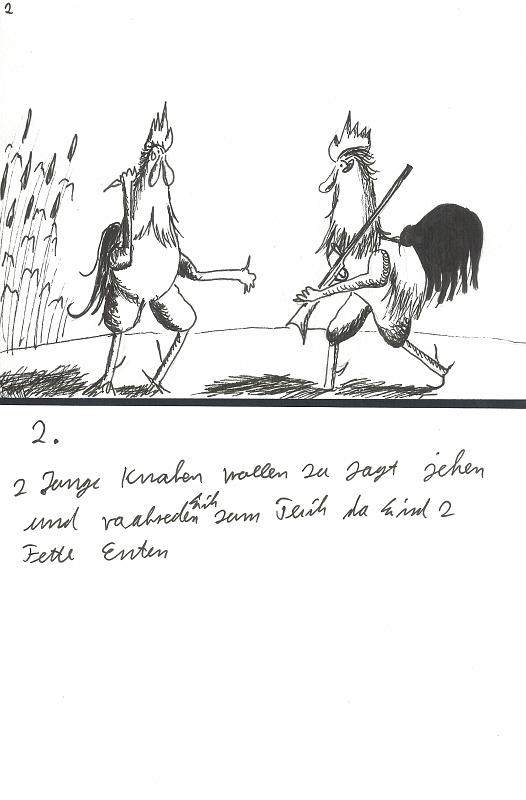 2
2.
2 Junge Knaben wollen zu Jagt jehen
und vaabreden sich zum Teich da sind 2
Fette Enten